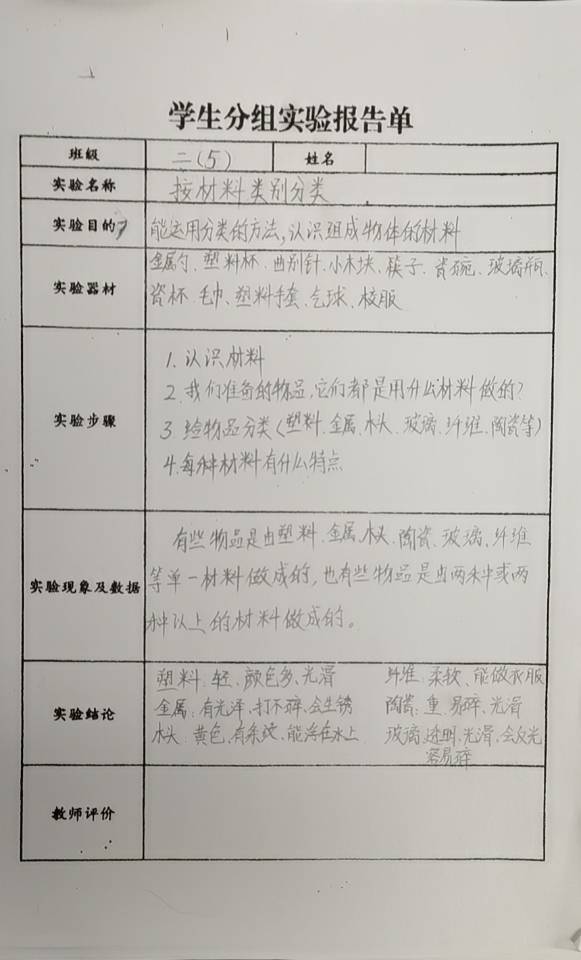 学生分组实验报告单
班级 二(5) 姓名
实验名称 按材料类别分类
实验目的 能运用分类的方法,认识组成物体的材料
实验器材
金属勺、塑料杯、曲别针、小木块、筷子、瓷碗、玻璃瓶、
瓷杯、毛巾、塑料手套、气球、校服
实验步骤
1. 认识材料
2. 我们准备的物品,它们都是用什么材料做的?
3. 给物品分类(塑料、金属、木头、玻璃、纤维、陶瓷等)
4. 每种材料有什么特点
实验现象及数据
有些物品是由塑料、金属、木头、陶瓷、玻璃、纤维
等单一材料做成的,也有些物品是由两种或两
种以上的材料做成的。
实验结论
塑料:轻、颜色多、光滑 纤维:柔软、能做衣服
金属:有光泽、打不碎、会生锈 陶瓷:重、易碎、光滑
木头:黄色、有条纹、能浮在水上 玻璃:透明、光滑、会反光
容易碎
教师评价